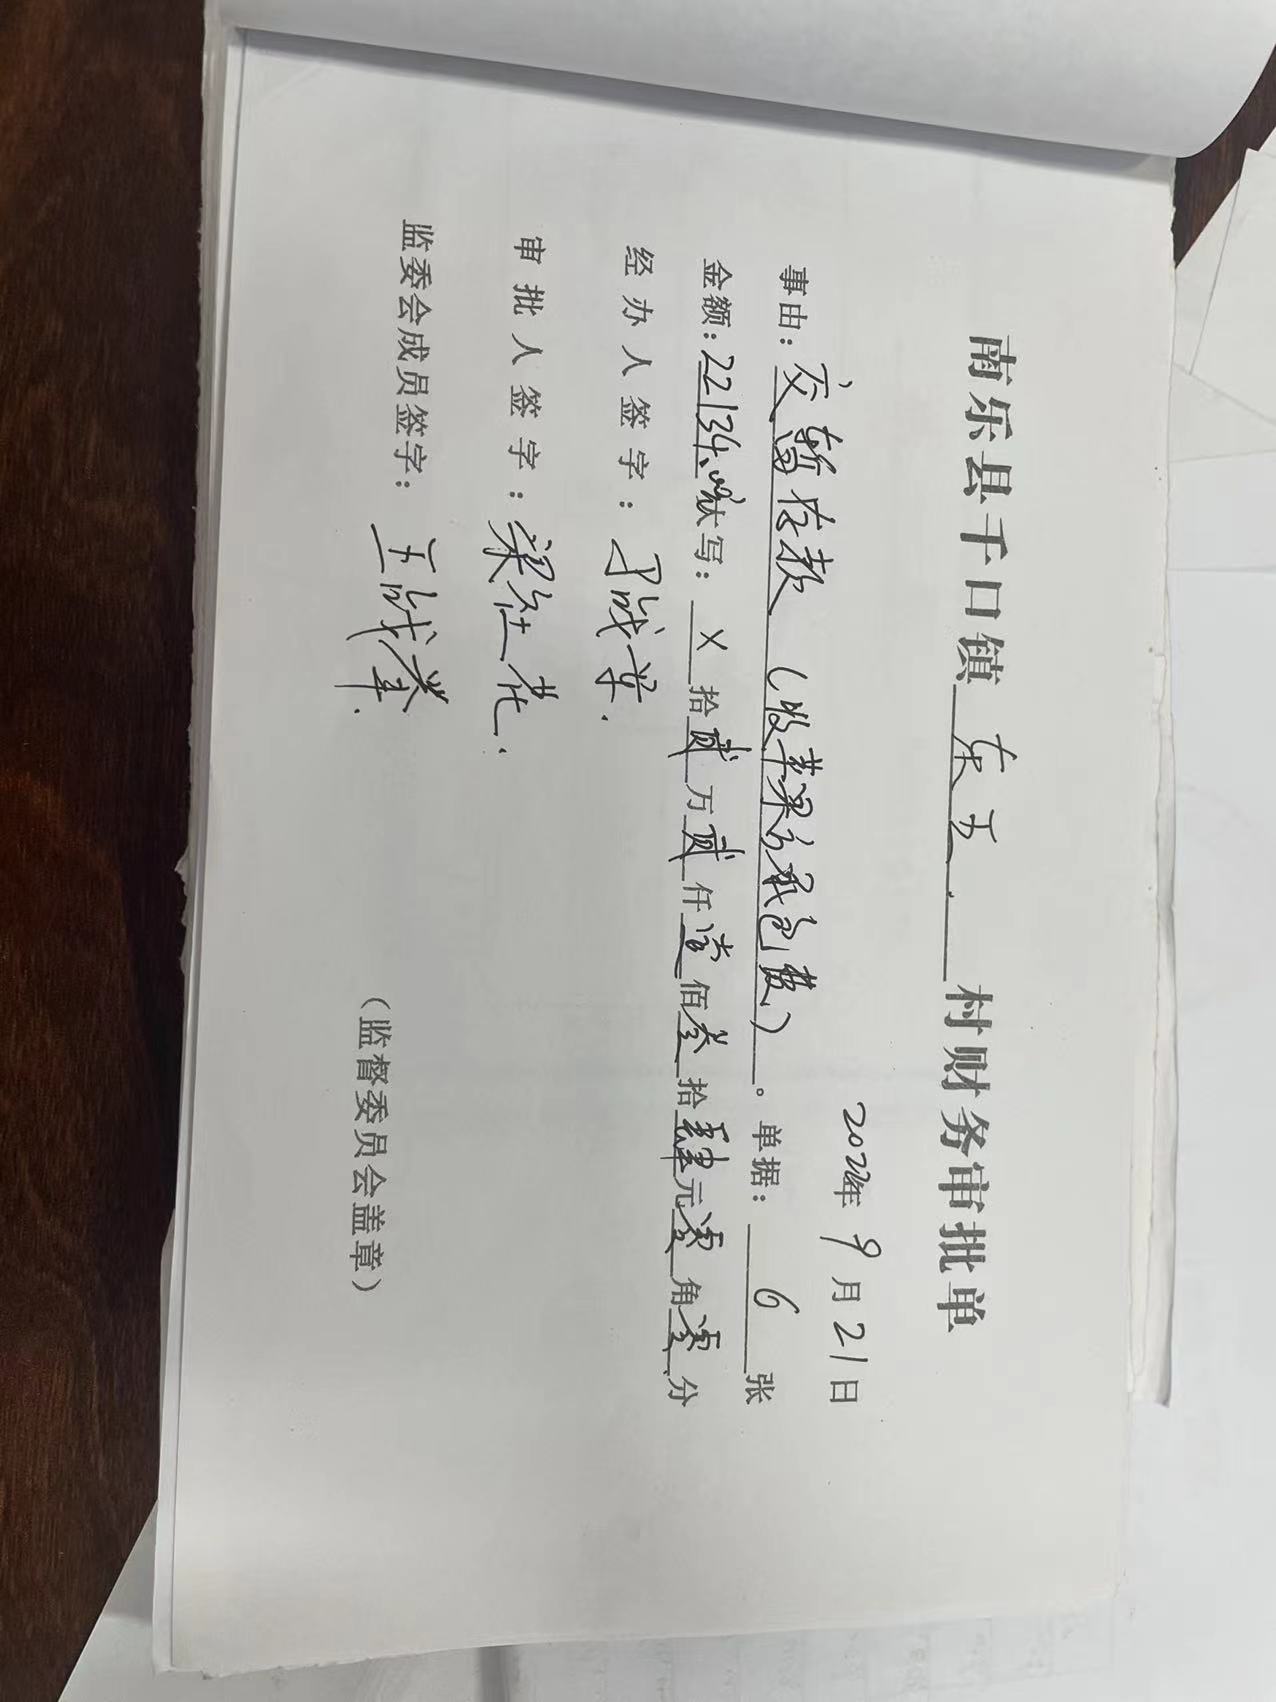 南乐县千口镇东王村财务审批单
2022年9月21日
事由：交暂存款（收苹果园承包费）。单据：6张
金额：22134.00大写：X拾贰万贰仟壹佰叁拾肆元零角零分
经办人签字：
审批人签字：梁社花.
监委会成员签字：王战举.
（监督委员会盖章）